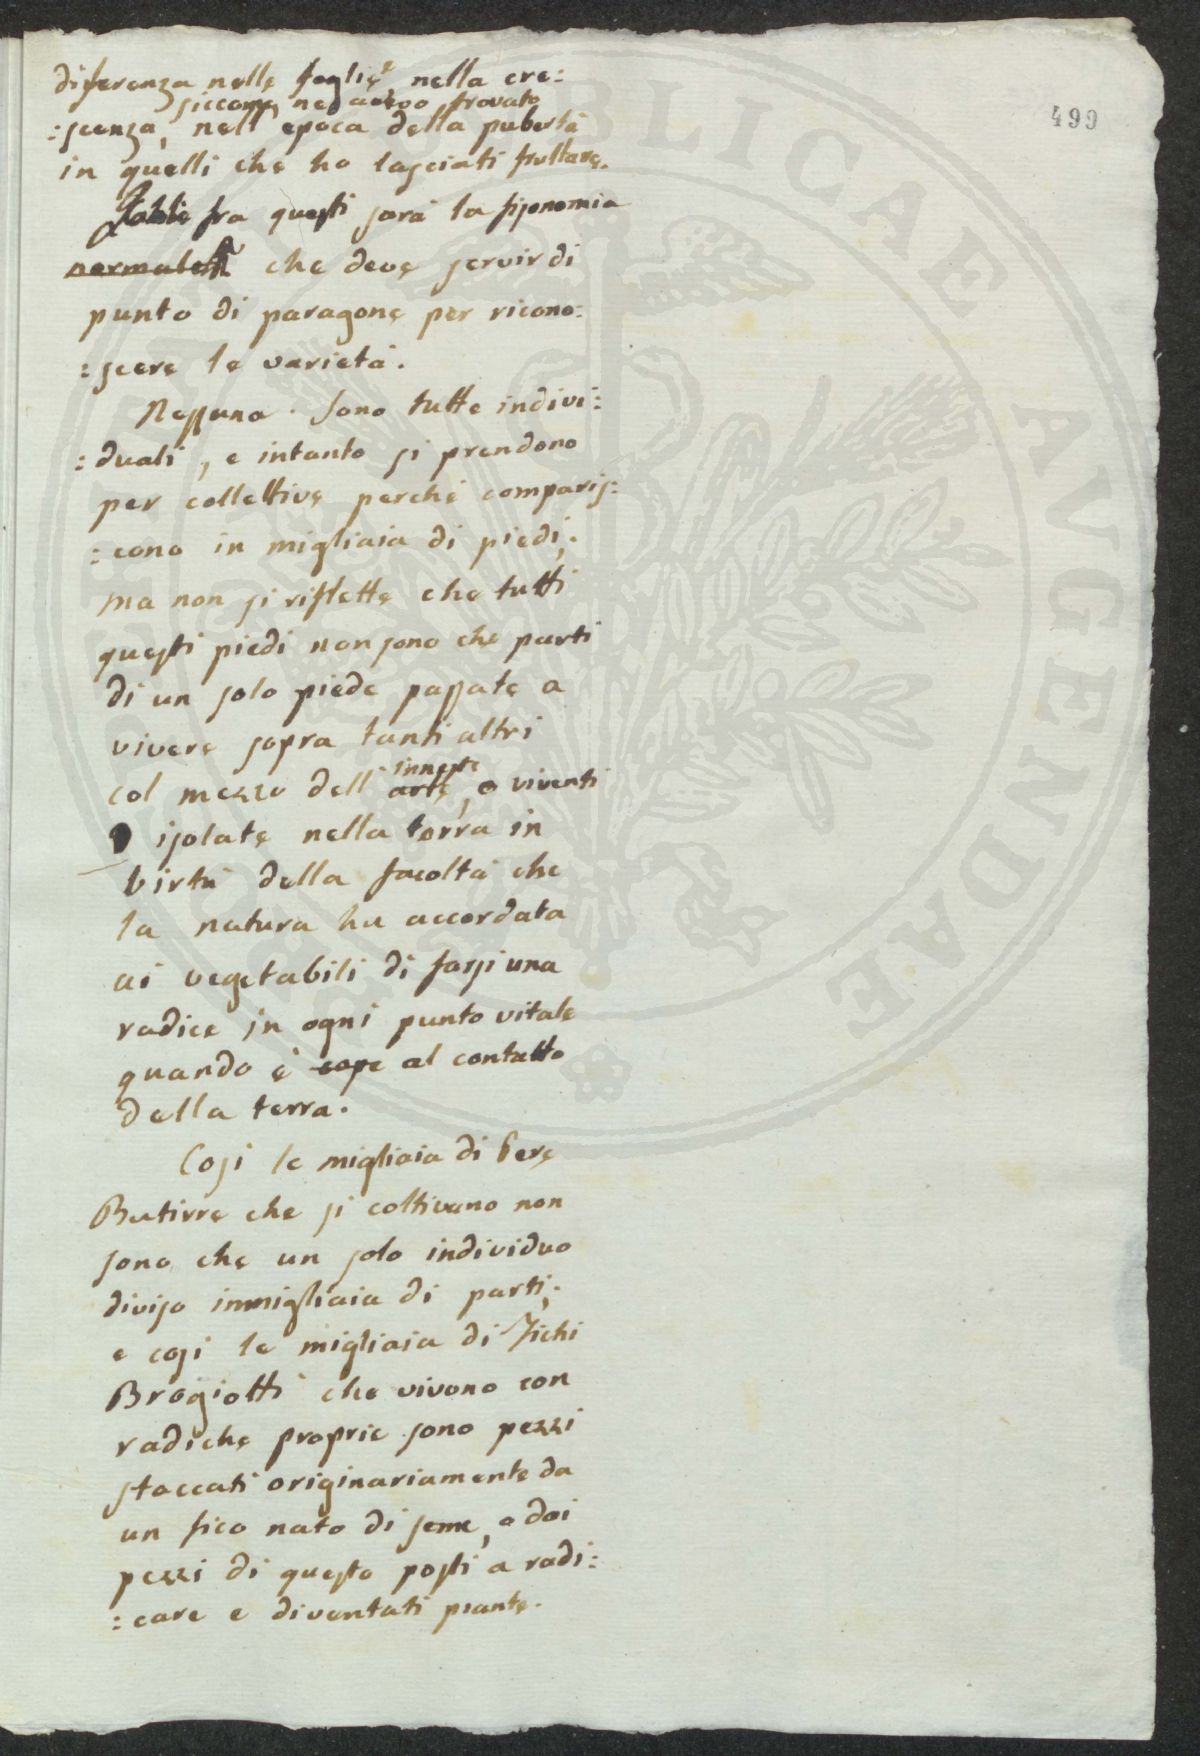 499
diferenza nelle foglie e nella cre:
siccome ne aveva trovato
:scenza, nell'epoca della pubertà
in quelli che ho lasciati fruttare.
Quale fra questi sarà la fisonomia
normale che deve servir di
punto di paragone per ricono:
:scere le varietà.
Nessuna. Sono tutte indivi:
:duali, e intanto si prendono
per collettive perchè comparis:
:cono in migliaia di piedi;
ma non si riflette che tutti
questi piedi non sono che parti
di un solo piede passate a
vivere sopra tanti altri
innesto
col mezzo dell'arte, o viventi
isolate nella terra in
virtù della facoltà che
la natura ha accordata
ai vegetabili di farsi una
radice in ogni punto vitale
quando è al contatto
della terra.
Così le migliaia di Pere
Butirre che si coltivano non
sono che un solo individuo
diviso in migliaia di parti;
e così le migliaia di Fichi
Brogiotti che vivono con
radiche proprie sono pezzi
staccati originariamente da
un fico nato di seme, o dai
pezzi di questo posti a radi:
:care e diventati piante.
PUBLICAE AVGENDAE